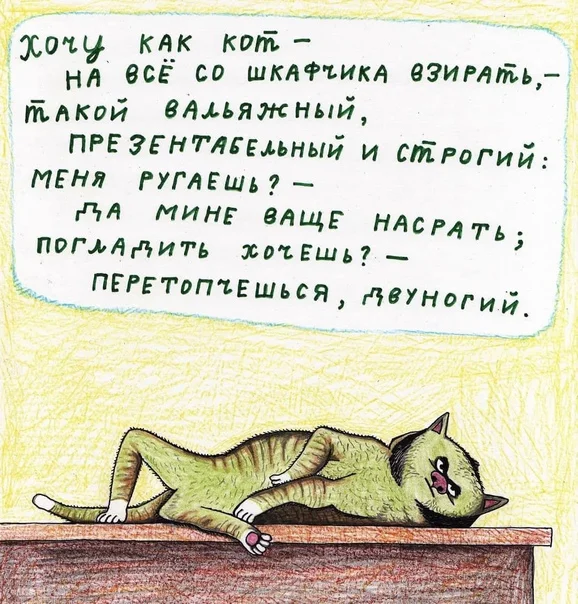 Хочу как кот –
на всё со шкафчика взирать,–
такой вальяжный,
презентабельный и строгий:
меня ругаешь? –
да мине ваще насрать;
погладить хочешь? –
перетопчешься, двуногий.